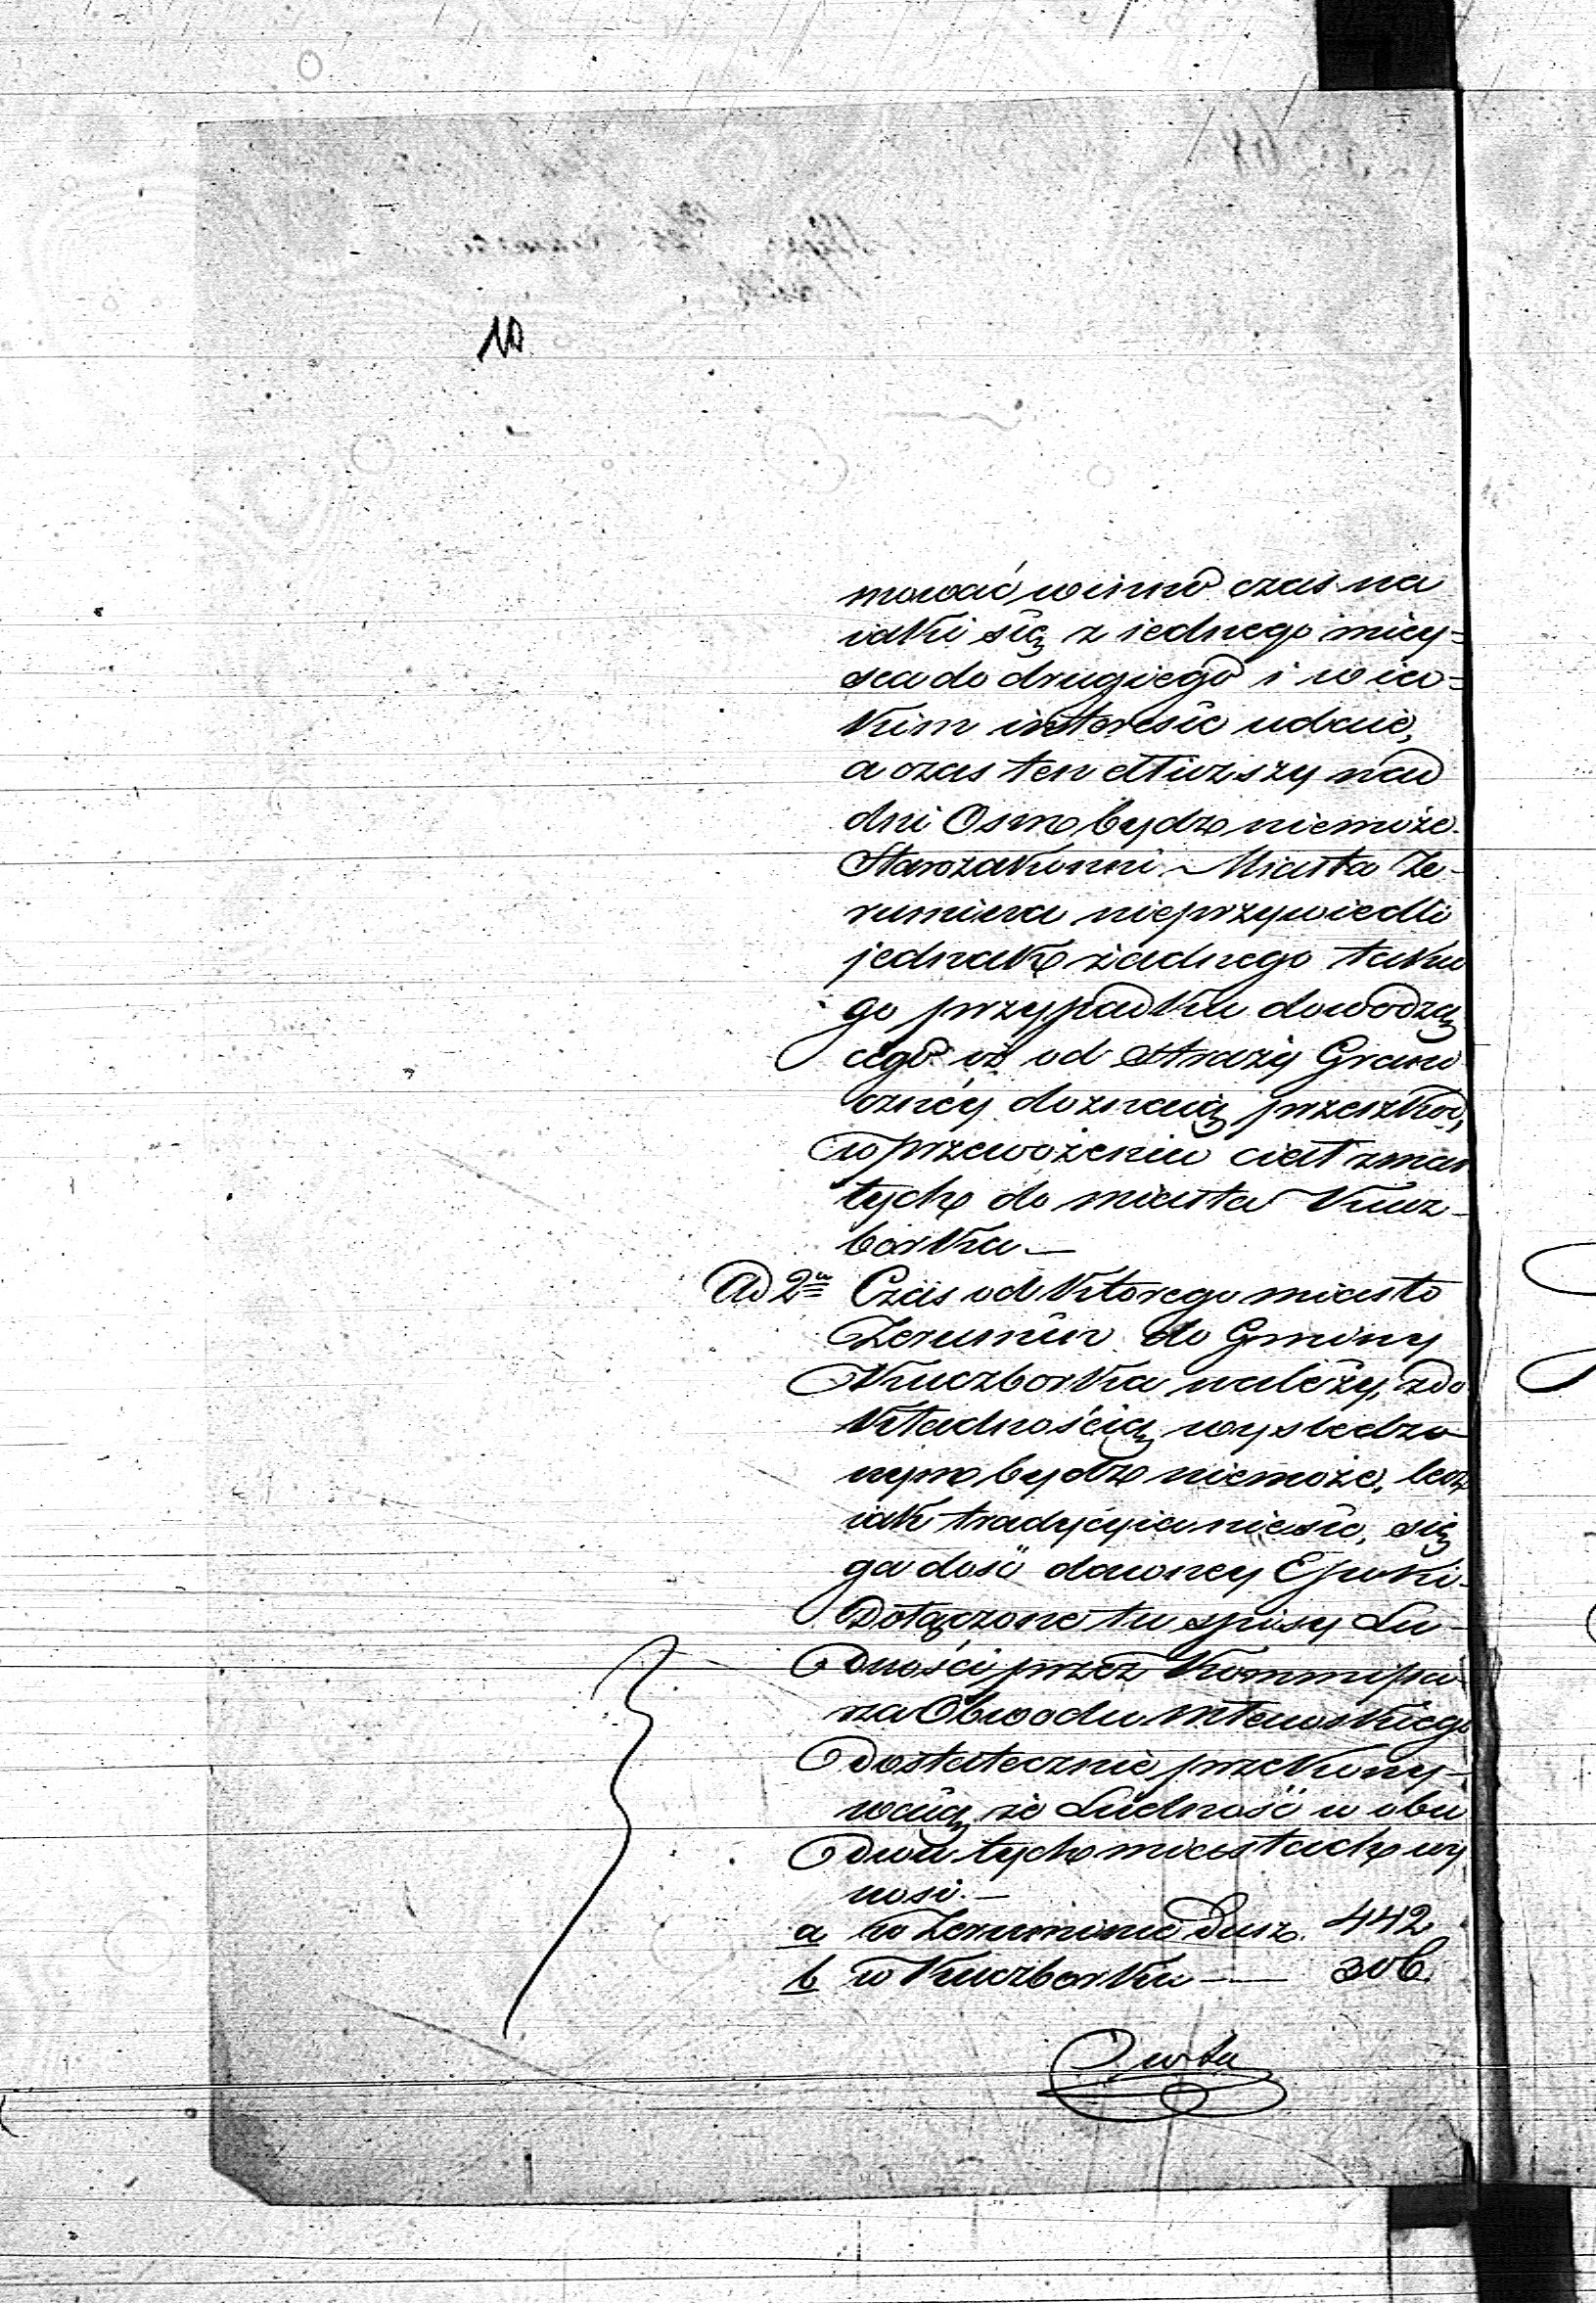 10
mować winno czas na
iaki się z iednego miey=
sca do drugiego i w ia=
kim interesie udaie,
a czas ten dłuższy nad
dni Osm bydz niemoże.
Starozakonni Miasta Ze-
rumina nieprzywiedli
jednak żadnego take
go przypadku dowodzą
cego iż od Straży Grani
cznéy doznaią przeszkod,
w przewożeniu ciał zmar
łych do miasta Kucz-
borka —
Ad 2um Czas od ktorego miasto
Zerumin do Gminy
Kuczborka należy, z do
kładnością wysledzo
nym bydz niemoże, lecz
iak tradycyia niesie, się
ga dość dawney Epoki.
Dołączone tu spisy Lu-
dności przez Kommissa
rza Obwodu Mławskiego
Dostatecznie przekony-
waią że Ludność w obu
Dwu tych miastach wy
nosi. —
a w Zeruminie Dusz. 442
b w Kuczborku —